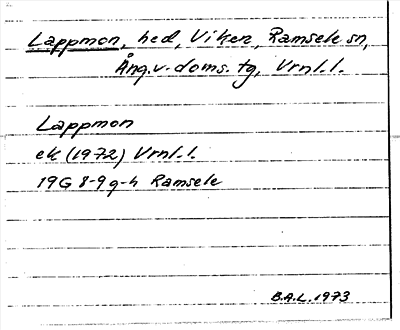 Lappmon, hed, Viken, Ramsele sn,
Ång.v. doms. tg, Vrnl.l.
Lappmon
ek (1972) Vrnl.l.
19G 8-9 g-h Ramsele
B.A.L. 1973